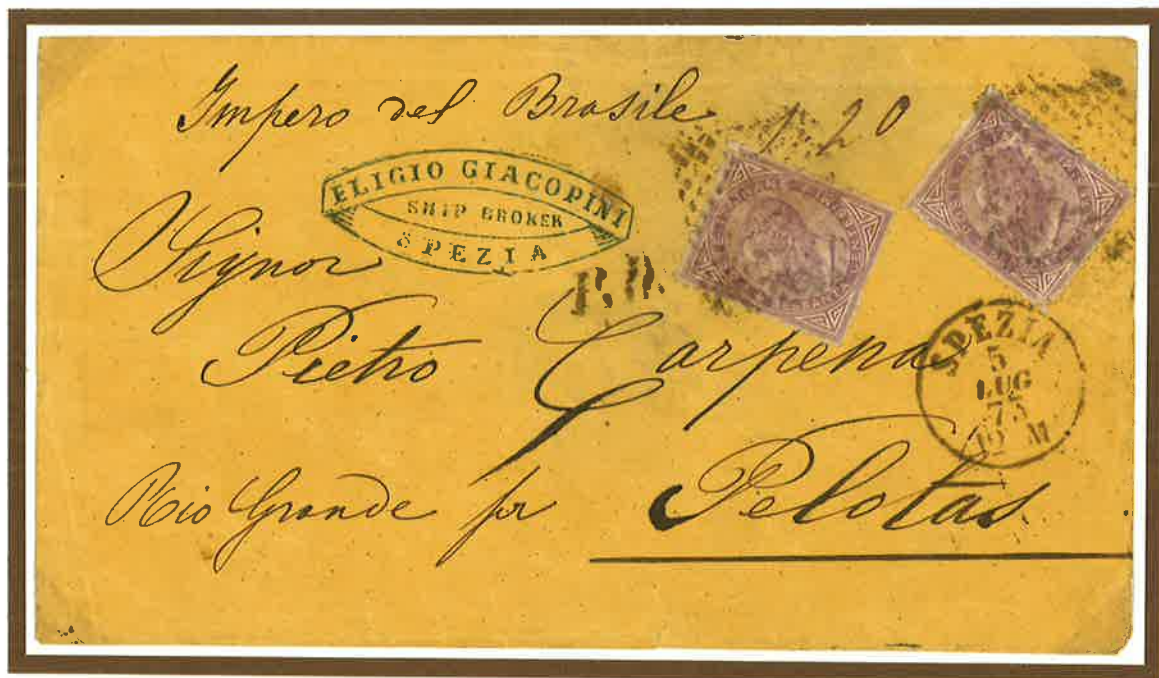 Impero del Brasile 1 20
ELIGIO GIACOPINI
SHIP BROKER
SPEZIA
Signor
P.D.
Pietro Carpena
SPEZIA
5
LUG
73
12 M
Rio Grande per Pelotas